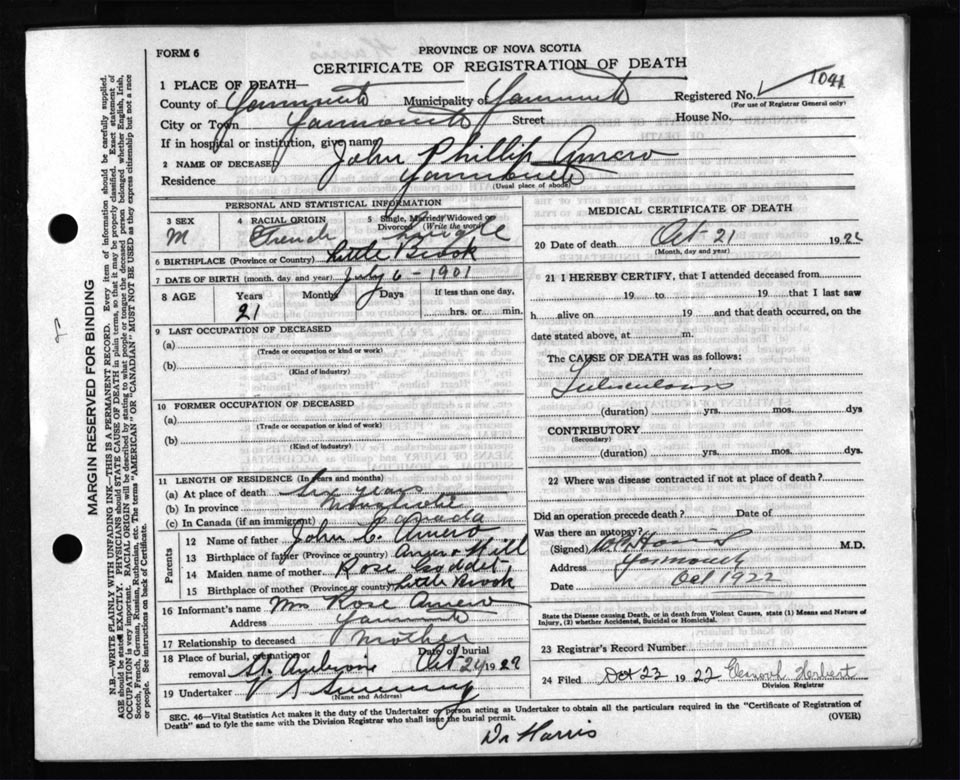 FORM 6
PROVINCE OF NOVA SCOTIA
CERTIFICATE OF REGISTRATION OF DEATH
1 PLACE OF DEATH—
Registered No. 1041
(For use of Registrar General only)
County of Yarmouth Municipality of Yarmouth
City or Town Yarmouth Street House No.
If in hospital or institution, give name
2 NAME OF DECEASED John Phillip Amero
Residence Yarmouth
(Usual place of abode)
PERSONAL AND STATISTICAL INFORMATION
3 SEX M
4 RACIAL ORIGIN French
5 Single, Married, Widowed or Divorced (Write the word) Single
6 BIRTHPLACE (Province or Country) Little Brook
7 DATE OF BIRTH (month, day and year) July 6 - 1901
8 AGE Years 21 Months Days If less than one day, hrs. or min.
9 LAST OCCUPATION OF DECEASED
(a)
(Trade or occupation or kind or work)
(b)
(Kind of industry)
10 FORMER OCCUPATION OF DECEASED
(a)
(Trade or occupation or kind of work)
(b)
(Kind of industry)
11 LENGTH OF RESIDENCE (In years and months)
(a) At place of death Six years
(b) In province
(c) In Canada (if an immigrant) Canada
Parents
12 Name of father John C. Amero
13 Birthplace of father (Province or country) Hill
14 Maiden name of mother Rose
15 Birthplace of mother (Province or country) Little Brook
16 Informant's name Mrs Rose Amero
Address Yarmouth
17 Relationship to deceased Mother
18 Place of burial, cremation or removal St. Ambroise Date of burial Oct 24 1922
19 Undertaker
(Name and Address)
MEDICAL CERTIFICATE OF DEATH
20 Date of death Oct-21 1922
(Month, day and year)
21 I HEREBY CERTIFY, that I attended deceased from
19 to 19 that I last saw
h alive on 19 and that death occurred, on the
date stated above, at m.
The CAUSE OF DEATH was as follows:
Tuberculosis
(duration) yrs. mos. dys
CONTRIBUTORY
(Secondary)
(duration) yrs. mos. dys.
22 Where was disease contracted if not at place of death?
Did an operation precede death? Date of
Was there an autopsy?
(Signed) Harris M.D.
Address Yarmouth
Date Oct 1922
State the Disease causing Death, or in death from Violent Causes, state (1) Means and Nature of
Injury, (2) whether Accidental, Suicidal or Homicidal.
23 Registrar's Record Number
24 Filed Oct 23 1922 Herbert
Division Registrar
SEC. 46—Vital Statistics Act makes it the duty of the Undertaker or person acting as Undertaker to obtain all the particulars required in the "Certificate of Registration of
Death" and to fyle the same with the Division Registrar who shall issue the burial permit.
(OVER)
Dr Harris
MARGIN RESERVED FOR BINDING
N.B.—WRITE PLAINLY WITH UNFADING INK—THIS IS A PERMANENT RECORD. Every item of information should be carefully supplied.
AGE should be stated EXACTLY. PHYSICIANS should STATE CAUSE OF DEATH in plain terms, so that it may be properly classified. Exact statement of
OCCUPATION is very important. RACIAL ORIGIN will be described by stating to what people or tongue the deceased person belonged whether English, Irish,
Scotch, French, German, Russian, Ruthenian, etc. The terms "AMERICAN" OR "CANADIAN" MUST NOT BE USED as they express citizenship but not a race
or people. See instructions on back of Certificate.